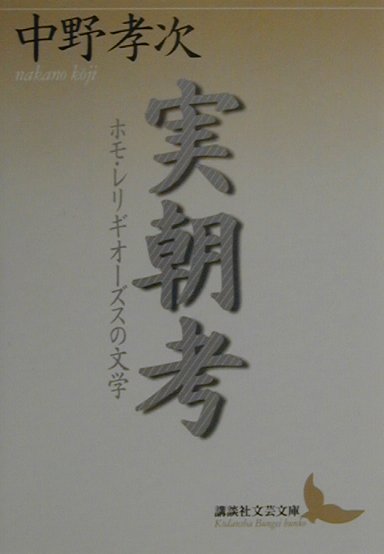 中野孝次
nakano kōji
実朝考
ホモ・レリギオーズスの文学
講談社文芸文庫
Kōdansha Bungei bunko